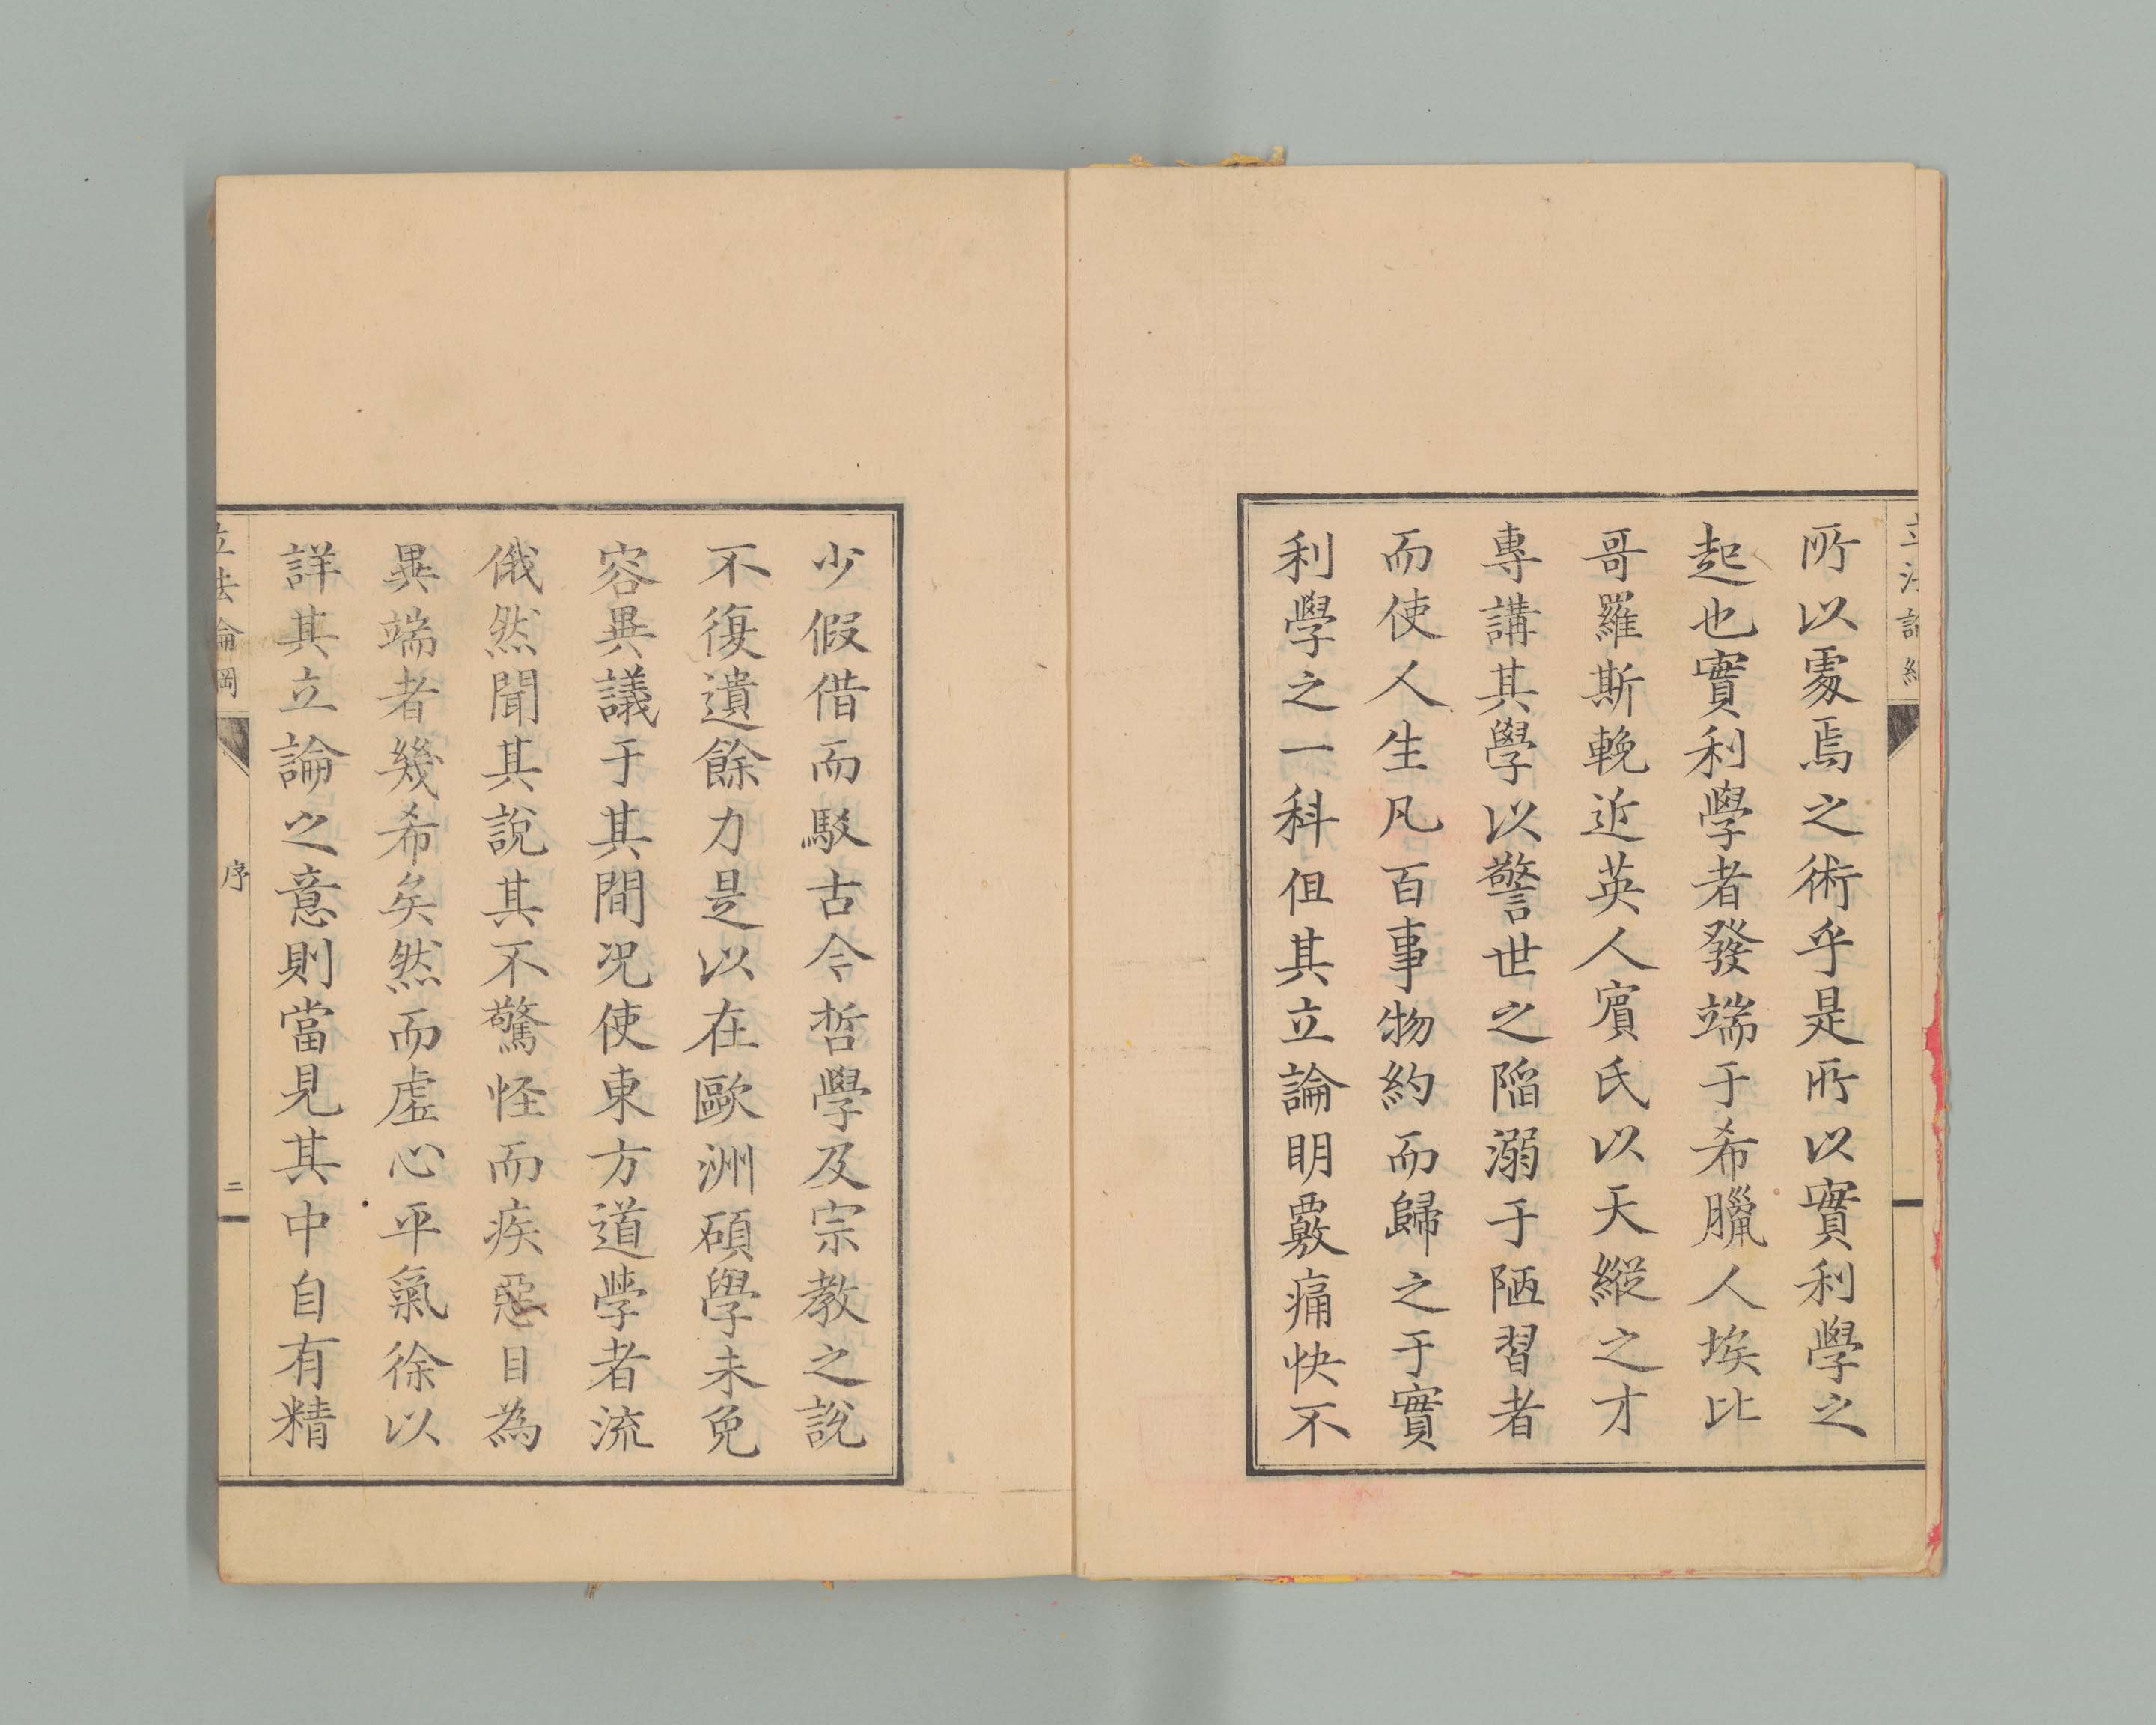 立法論綱
所以處焉之術乎是所以實利學之
起也實利學者發端于希臘人埃比
哥羅斯輓近英人賓氏以天縱之才
專講其學以警世之陷溺于陋習者
而使人生凡百事物約而歸之于實
利學之一科但其立論明覈痛快不
少假借而駁古今哲學及宗教之說
不復遺餘力是以在歐洲碩學未免
容異議于其間况使東方道學者流
俄然聞其說其不驚怪而疾惡目為
異端者幾希矣然而虛心平氣徐以
詳其立論之意則當見其中自有精
立法論綱
序
二